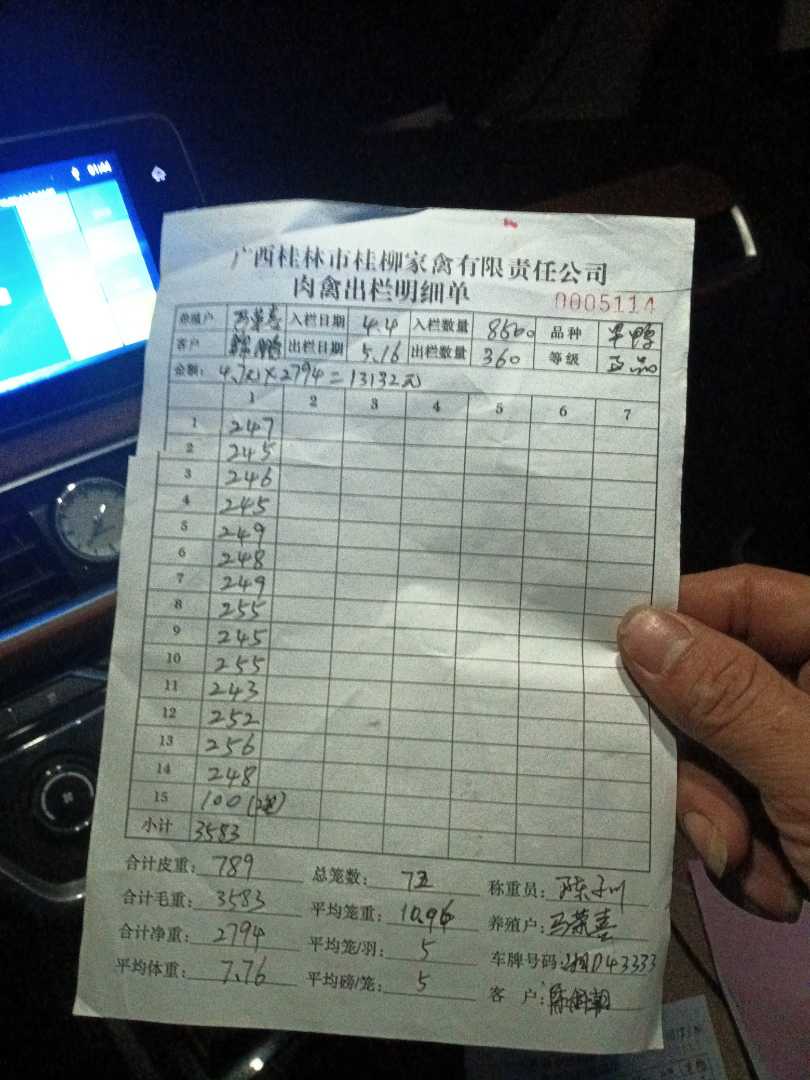 01:44
广西桂林市桂柳家禽有限责任公司
肉禽出栏明细单
0005114
养殖户 马荣喜 入栏日期 4.4 入栏数量 8500 品种
客户 出栏日期 5.16 出栏数量 360 等级 正品
金额: ×2794=13132元
1 2 3 4 5 6 7
1 247
2 245
3 246
4 245
5 249
6 248
7 249
8 255
9 245
10 255
11 243
12 252
13 256
14 248
15 100
小计 3583
合计皮重: 789 总笼数: 72 称重员:
合计毛重: 3583 平均笼重: 10.96 养殖户: 马荣喜
合计净重: 2794 平均笼/羽: 5 车牌号码: 湘D43333
平均体重: 7.76 平均磅/笼: 5 客户: